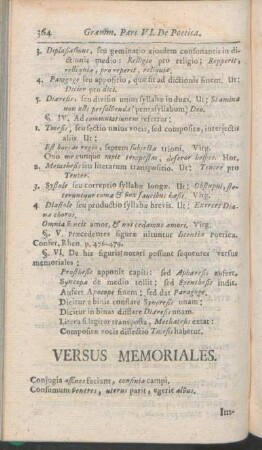 364 Gramm. Pars VI. De Poetica.
3. Diplasiasmus, seu geminatio ejusdem consonantis in di-
ctionis medio: Relligio pro religio; Repperit,
relliquiæ, pro reperit, reliquiæ.
4. Paragoge seu appositio, quæ fit ad dictionis finem. Ut:
Dicier pro dici.
5. Diæresis, seu divisio unius syllabæ in duas. Ut; Stamina
non ulli persoluenda! pentasyllabum; Deo.
§. IV. Ad commutationem referuntur:
1. Tmesis, seu sectio unius vocis, sed compositæ, interjectis
aliis Ut:
Est Boreæ regio, septem subjecta trioni, Virg.
Quo me cunque rapit tempestas, deferor hospes. Hor.
2. Metathesis seu literarum transpositio. Ut: Teucer pro
Teucrer.
3. Systole seu correptio syllabæ longæ. Ut; Obstupui, ste-
teruntque comæ & vox faucibus hæsit. Virg.
4. Diastole seu productio syllabæ brevis. Ut: Exercet Dia-
na choros,
Omnia vincit amor, & nos cedamus amori, Virg.
§. V. Præcedentes figuræ nituntur licentia poetica.
Confer, Rhen. p. 476-479.
§. VI. De his figuris notari possunt sequentes versus
memoriales:
Prosthesis apponit capiti: sed Aphæresis aufert,
Syncopa de medio tollit; sed Epenthesis indit.
Aufert Apocope finem; sed dat Paragoge.
Dicitur e binis conflare Synæresis unam;
Dicitur in binas diffflare Diæresis unam.
Litera si legitur transposta, Metathesis extat:
Compositæ vocis dissectio Tmesis habetur.
VERSUS MEMORIALES.
Conjugia affines faciunt, confinia campi.
Consumunt Ventres, uterus parit, egerit alvus.
Im-